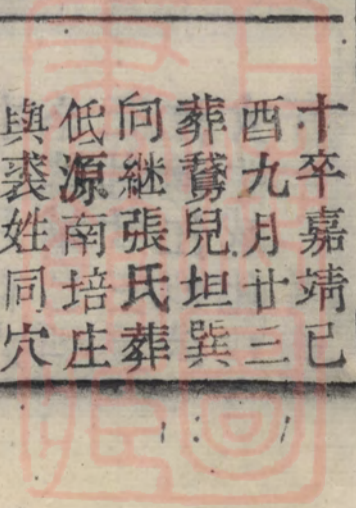 十卒嘉靖己
酉九月廿三
葬鵞兒坦巽
向継張氏葬
低源南培庄
與裘姓同穴